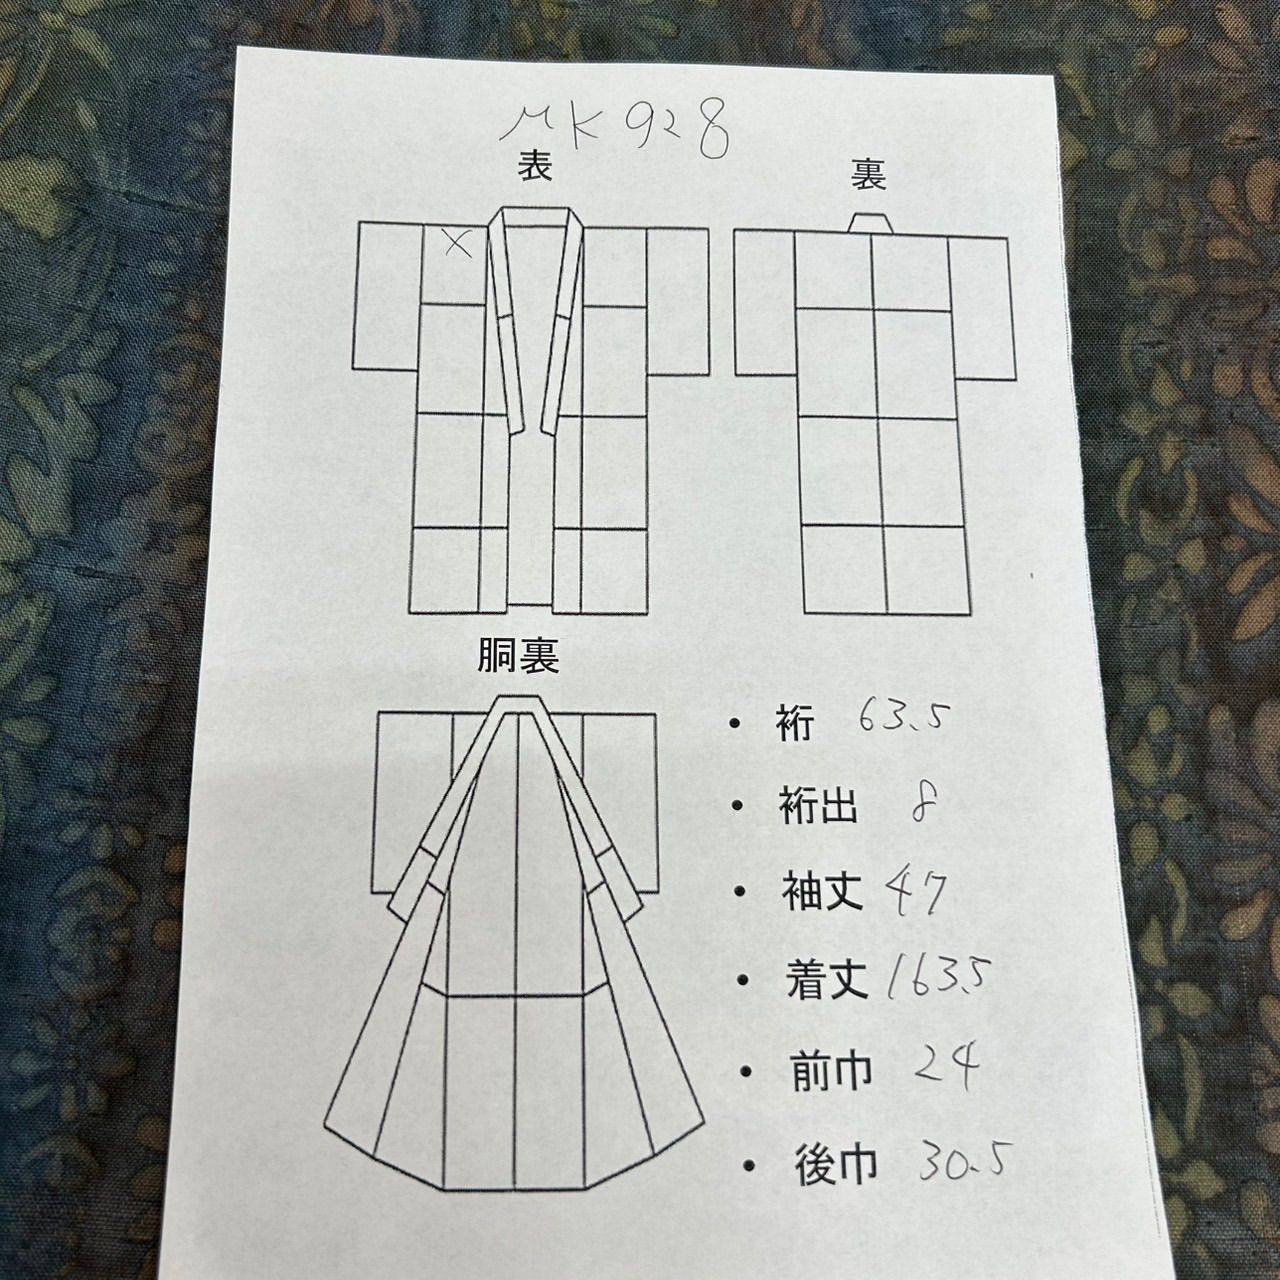 MK928
表
裏
×
胴裏
・裄 63.5
・裄出 8
・袖丈 47
・着丈 163.5
・前巾 24
・後巾 30.5